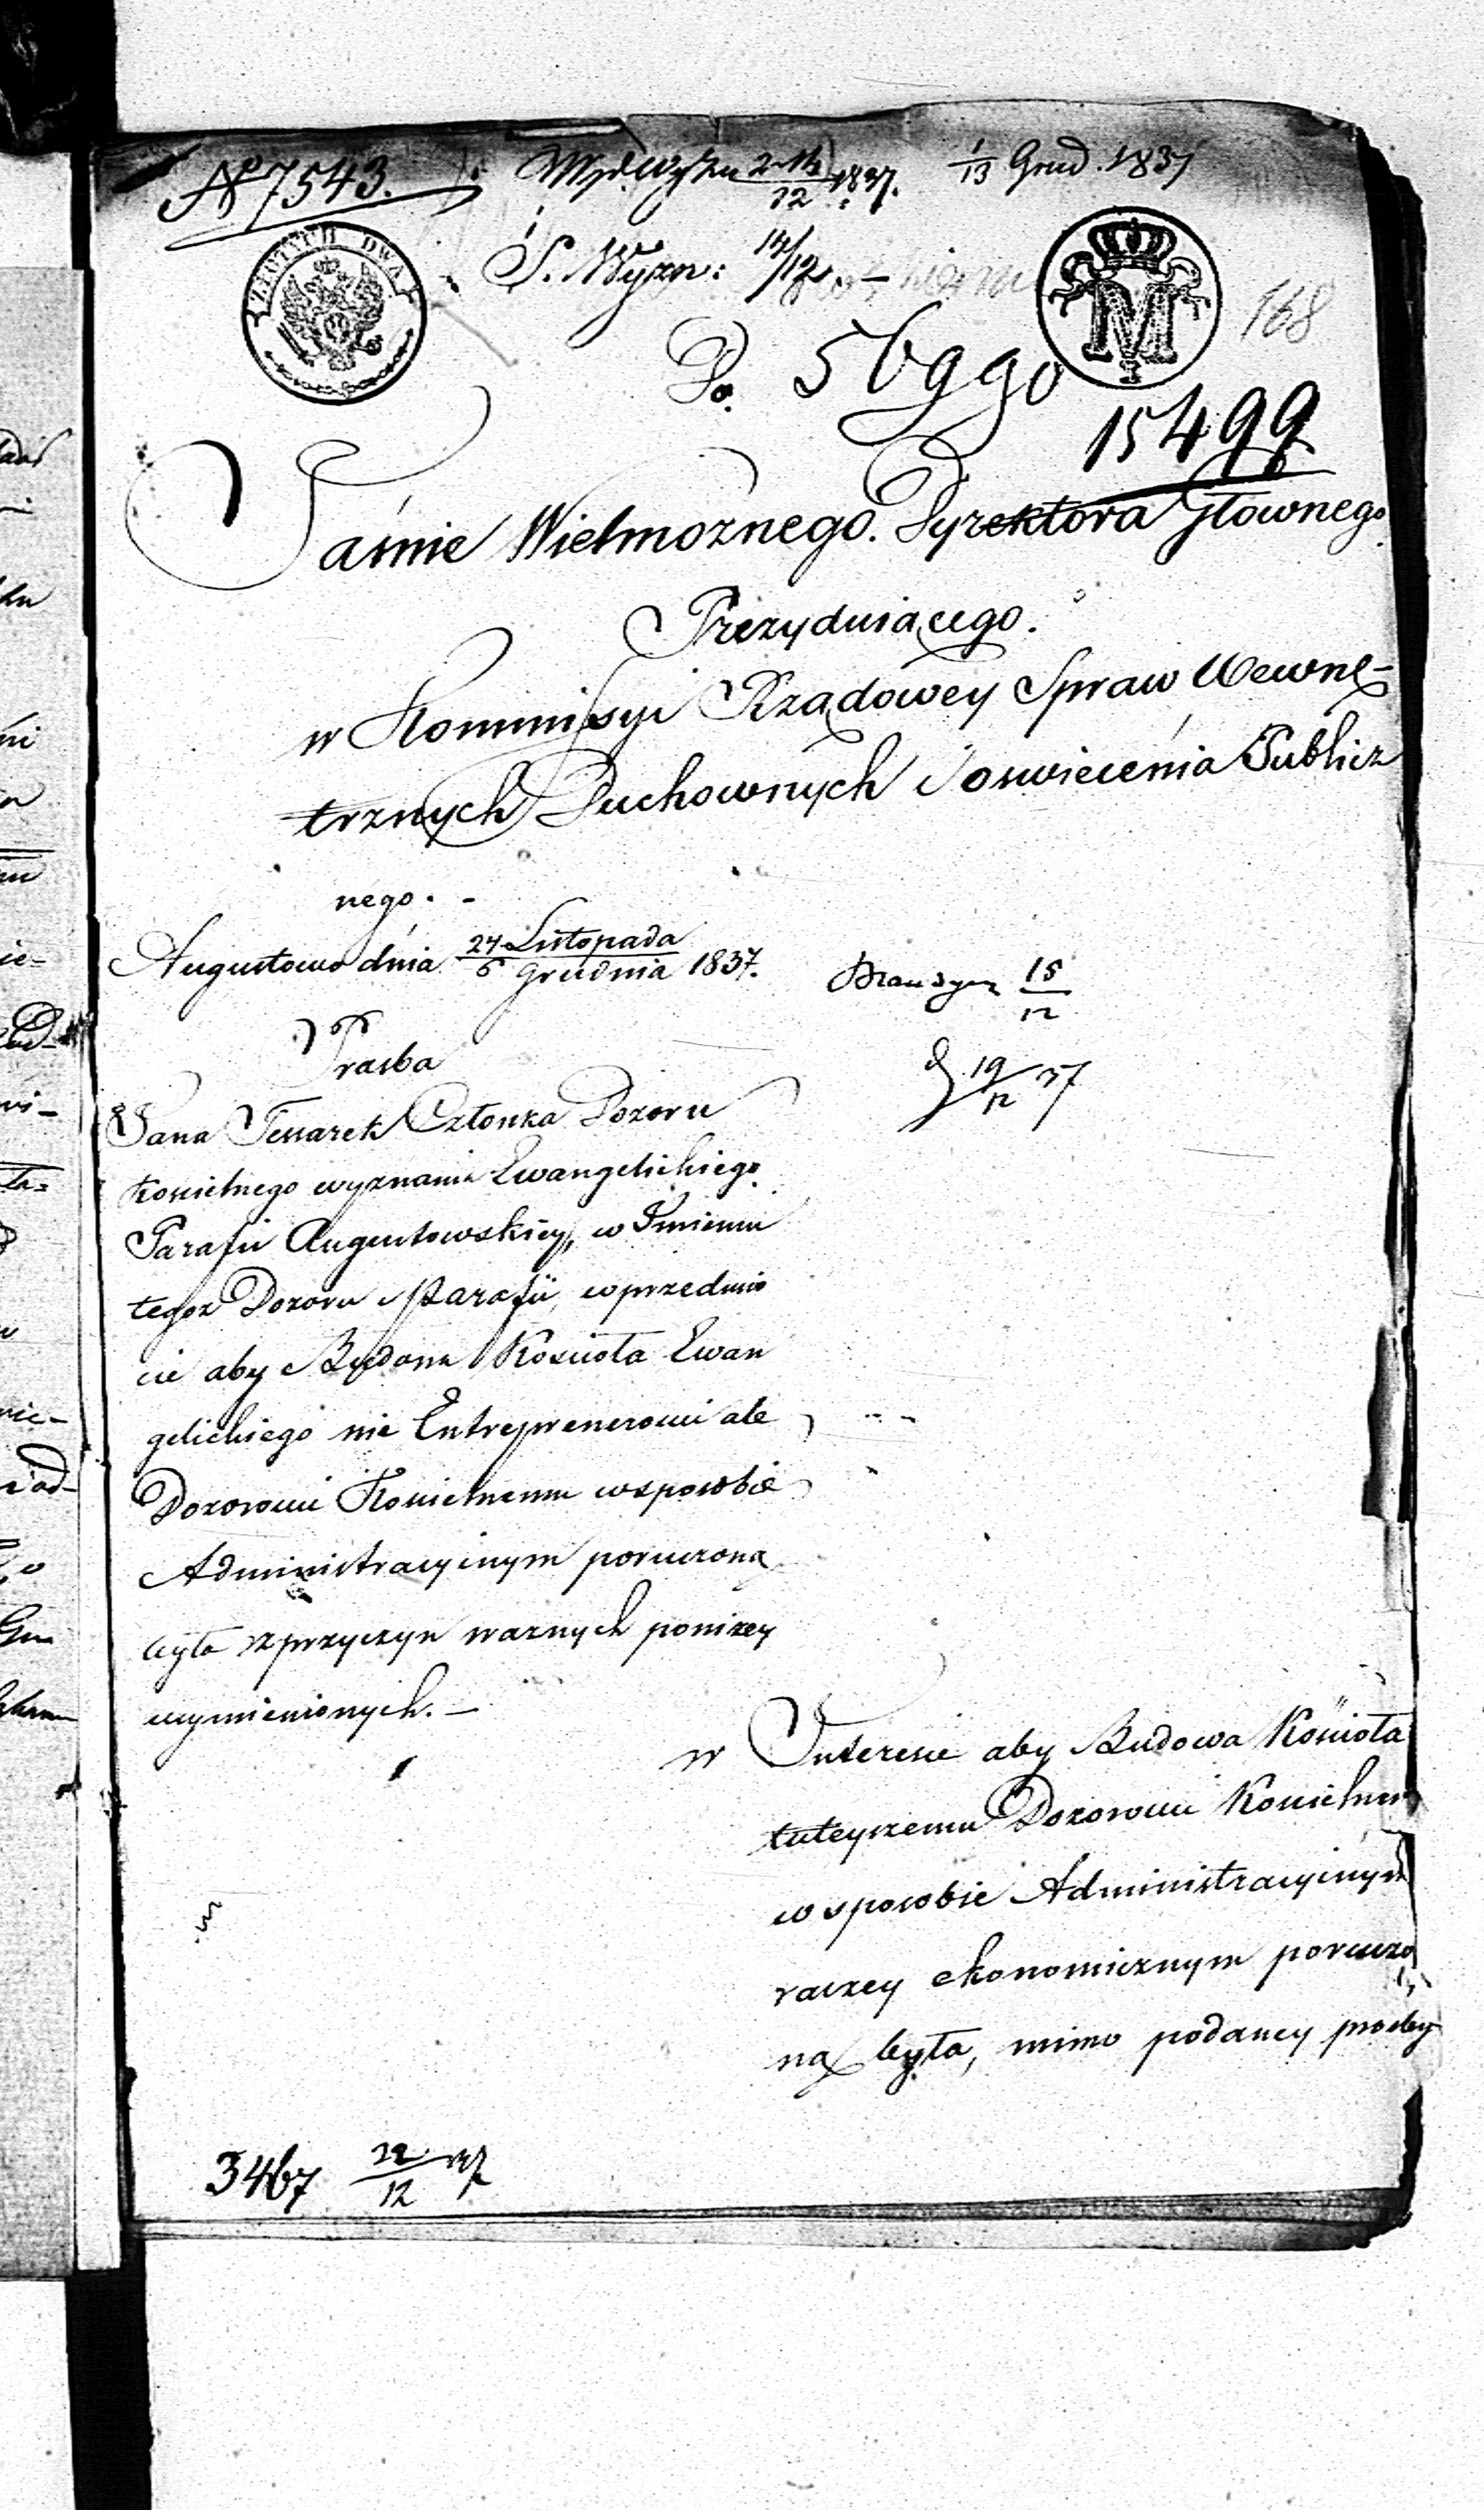 N° 7543. 2-14/12 1837. 1/13 Grud. 1837
ZŁOTYCH DWA
S. Wyzn: 14/12. -
M
168
Do
15499
Jaśnie Wielmożnego. Dyrektora Głownego
Prezyduiącego.
w Kommissyi Rządowey Spraw Wewnę-
trznych Duchownych i oswiecenia Publicz
nego. -
Augustowo dnia 24 Listopada / 6 Grudnia 1837.
15/12
Prosba
19/12 37
Jana Tessarek Członka Dozoru
Koscielnego wyznania Ewangelickiego
Parafii Augustowskiey, w Imieniu
tegoz Dozoru i Parafii, w przedmio
cie aby Budowa Kościoła Ewan
gelickiego nie Entreprenerowi ale
Dozorowi Koscielnemu w sposobie
Administracyinym poruczoną
była z przyczyn waznych ponizey
wymienionych. -
w Interesie aby Budowa Kościoła
tuteyszemu Dozorowi Koscielnem
w sposobie Administracyinym
raczey ekonomicznym poruczo
ną była, mimo podaney prosby
3467 22/12 37